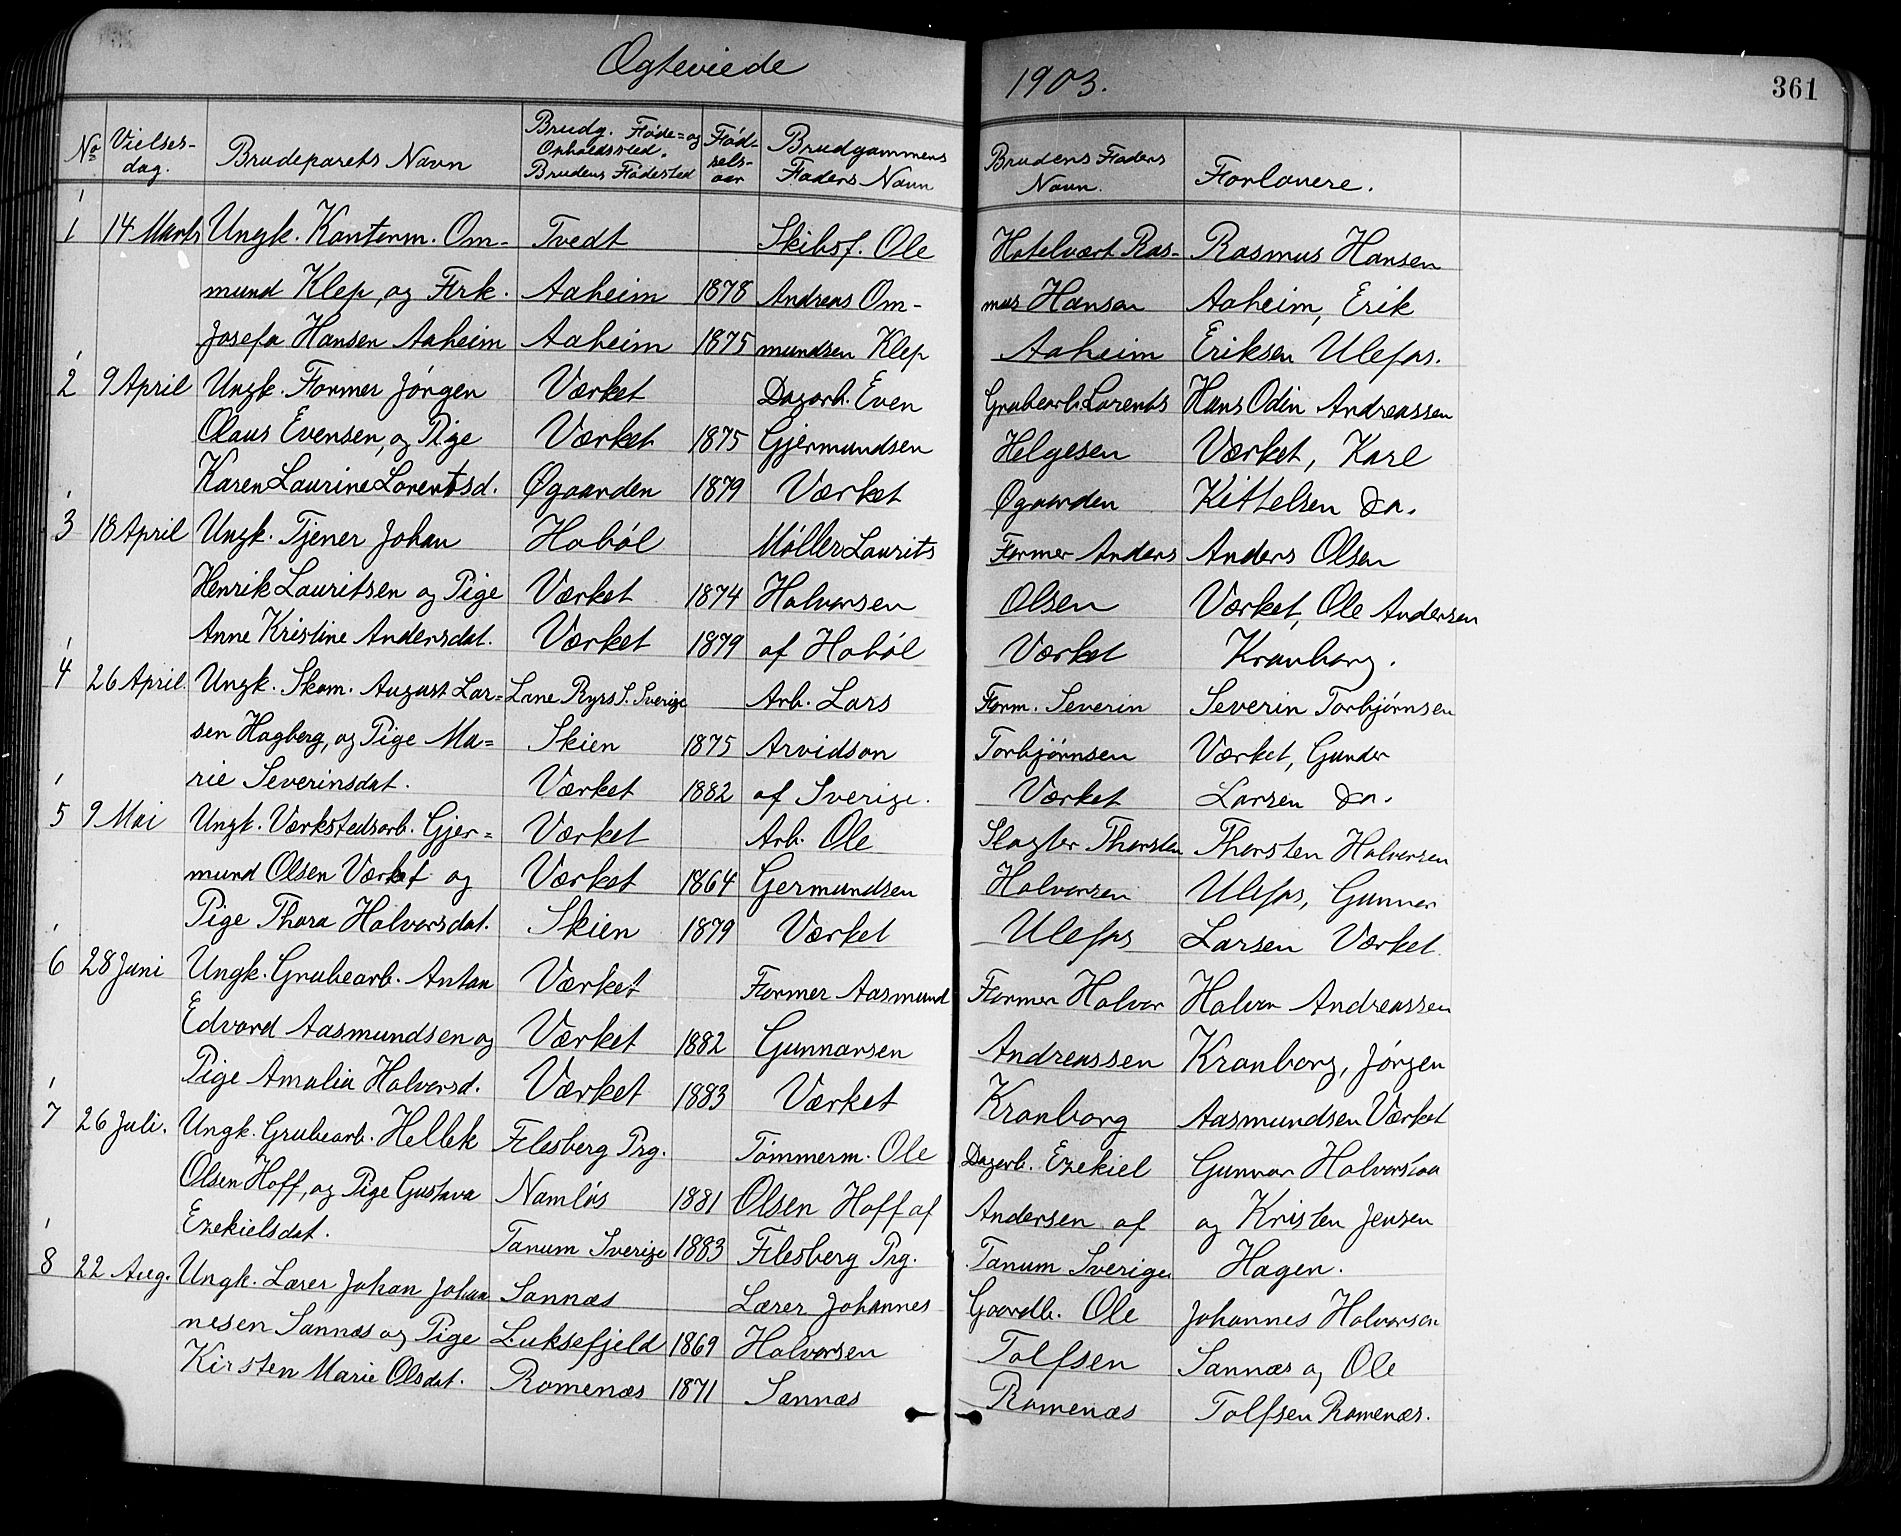 Ægteviede 1903. 361
No Vielses- dag. Brudeparets Navn Brudg. Føde= og Opholdssted. Brudens Fødested Fød- sels- aar Brudgommens Faders Navn Brudens Faders Navn. Forlovere.
1 14 Marts Ungk. Kontorm. Om- Tvedt Skibsf. Ole Hotelvært Ras- Rasmus Hansen
mund Klep, og Frk. Aaheim 1878 Andreas Om- mus Hansen Aaheim, Erik
Josefa Hansen Aaheim Aaheim 1875 mundsen Klep Aaheim Eriksen Ulefos.
2 9 April Ungk. Former Jørgen Værket Dagarb. Even Grubearb. Lorents Hans Odin Andreassen
Olaus Evensen, og Pige Værket 1875 Gjermundsen Helgesen Værket, Karl
Karen Laurine Lorentsd. Øgaarden 1879 Værket Øgaarden Kittelsen do.
3 18 April Ungk. Tjener Johan Hobøl Møller Laurits Former Anders Anders Olsen
Henrik Lauritsen og Pige Værket 1874 Halvorsen Olsen Værket, Ole Andersen
Anne Kristine Andersdat. Værket 1879 af Hobøl Værket Kranborg.
4 26 April. Ungk. Skom. August Lar= Lane Ryrs S. Sverige Arb. Lars Form. Severin Severin Torbjørnsen
sen Hagberg, og Pige Ma= Skien 1875 Arvidson Torbjørnsen Værket, Gunder
rie Severinsdat. Værket 1882 af Sverige. Værket Larsen do.
5 9 Mai Ungk. Værkstedsarb. Gjer= Værket Arb. Ole Slagter Thorsten Thorsten Halvorsen
mund Olsen Værket og Værket 1864 Germundsen Halvorsen Ulefos, Gunner
Pige Thora Halvorsdat. Skien 1879 Værket Ulefos Larsen Værket
6 28 Juni Ungk. Grubearb. Anton Værket Former Aasmund Former Halvor Halvor Andreassen
Edvard Aasmundsen og Værket 1882 Gunnarsen Andreassen Kranborg, Jørgen
Pige Amalia Halvorsd. Værket 1883 Værket Kranborg Aasmundsen Værket
7 26 Juli. Ungk. Grubearb. Hellek Flesberg Prg. Tømmerm. Ole Dagarb. Ezekiel Gunnar Holverstaa
Olsen Hoff, og Pige Gustava Namløs 1881 Olsen Hoff af Andersen af og Kristen Jensen
Ezekielsdat. Tanum Sverige 1883 Flesberg Prg. Tanum Sverige Hagen.
8 22 Aug. Ungk. Lærer Johan Johan Sannæs Lærer Johannes Gaardb. Ole Johannes Halvorsen
nesen Sannæs og Pige Luksefjeld 1869 Halvorsen Tolfsen Sannæs og Ole
Kirsten Marie Olsdat. Romenæs 1871 Sannæs Romenæs Tolfsen Romenæs.